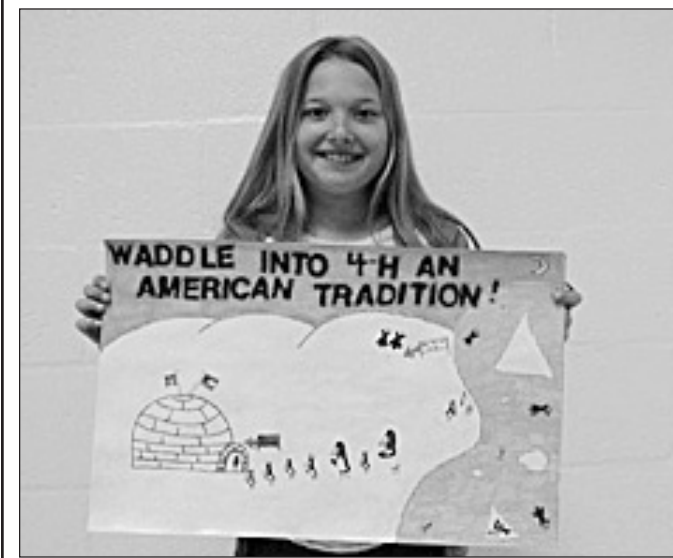 WADDLE INTO 4-H AN
AMERICAN TRADITION!